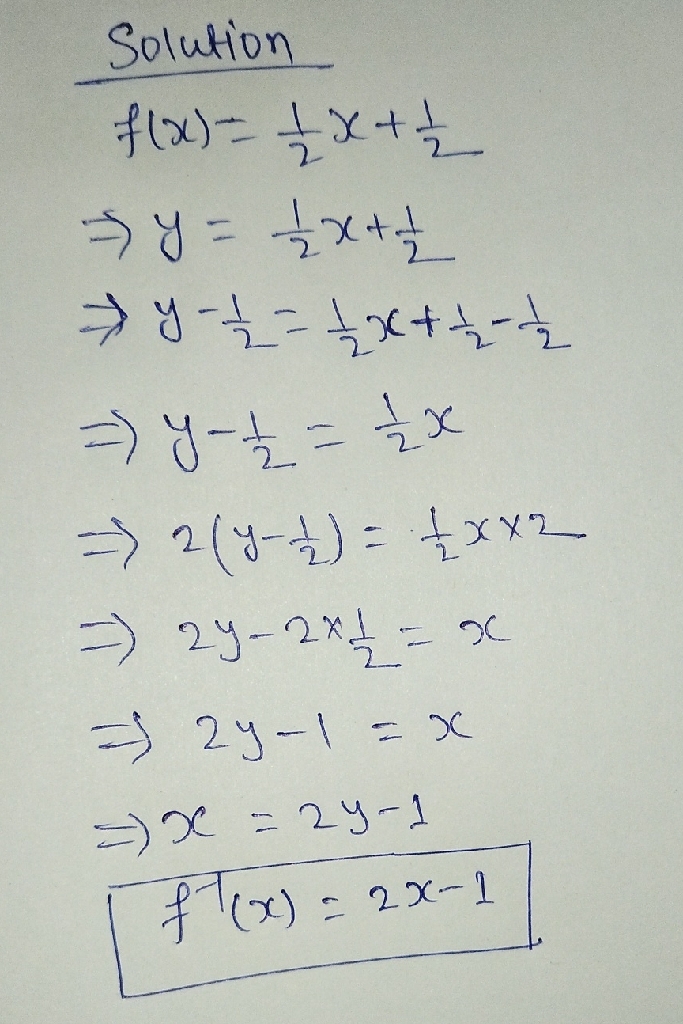 Solution
f(x) = 1/2 x + 1/2
⇒ y = 1/2 x + 1/2
⇒ y - 1/2 = 1/2 x + 1/2 - 1/2
⇒ y - 1/2 = 1/2 x
⇒ 2(y - 1/2) = 1/2 x × 2
⇒ 2y - 2 × 1/2 = x
⇒ 2y - 1 = x
⇒ x = 2y - 1
f⁻¹(x) = 2x - 1